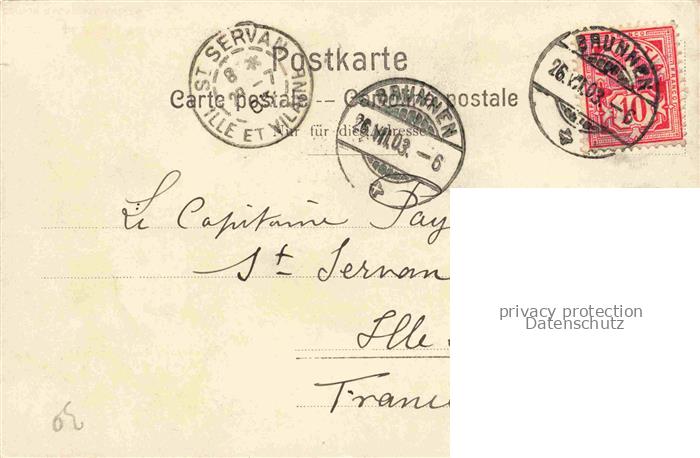 Postkarte
Carte postale -- Cartolina postale
Nur für die Adresse
ST SERVAN
ILLE ET VILAINE
8 *
28 -7
03
BRUNNEN
26.VII.03. - 6
BRUNNEN
26.VII.03. - 6
10
Le Capitaine Pay
St Servan
Ille
Franc
privacy protection
Datenschutz